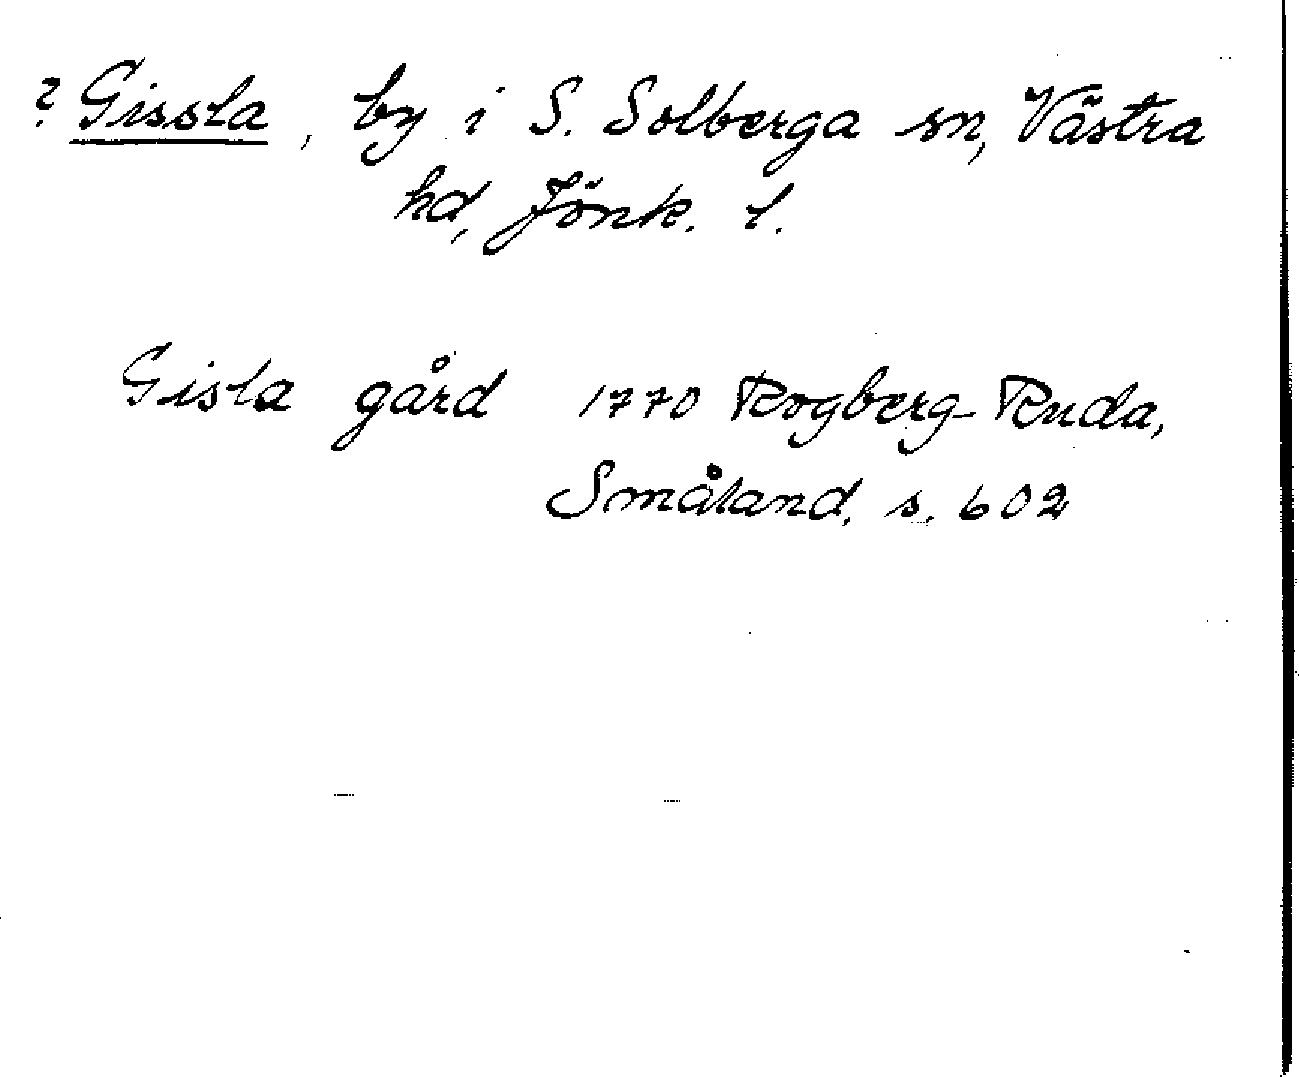 ? Gissla, by i S. Solberga sn, Västra
hd, Jönk. l.
Gisla gård 1770 Rogberg-Ruda,
Småland. s. 602